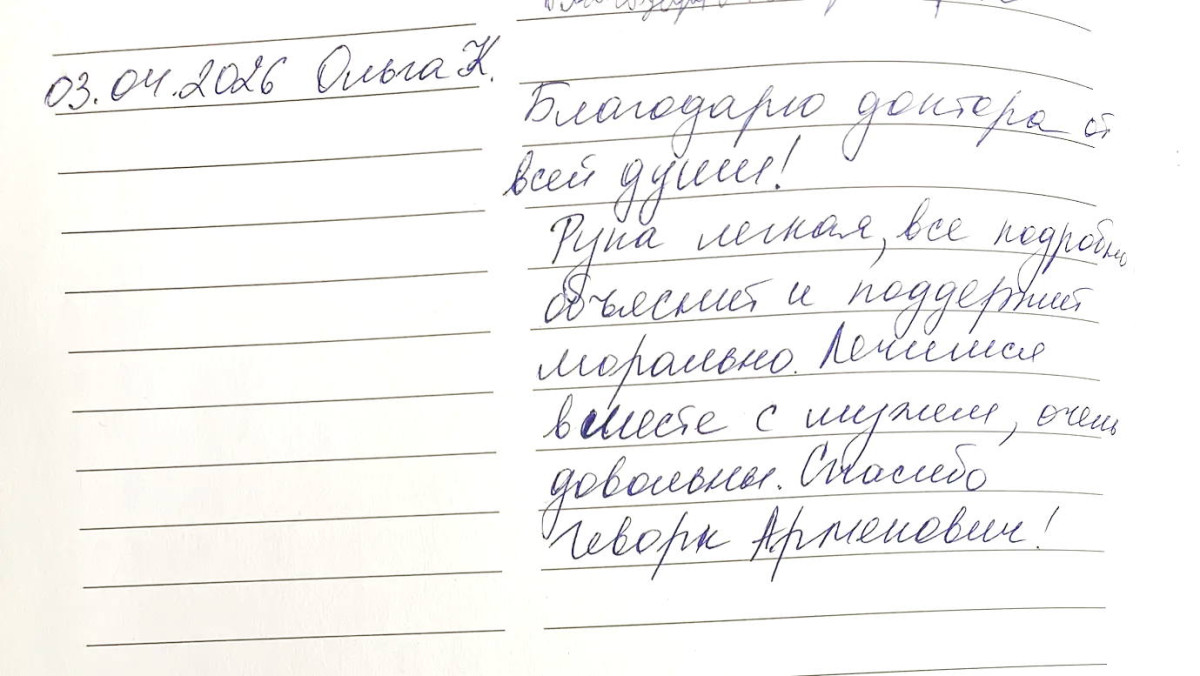 03.04.2026 Ольга К.
Благодарю доктора от
всей души!
Рука легкая, все подробно
объяснит и поддержит
морально. Лечимся
вместе с мужем, очень
довольны. Спасибо
Геворк Арменович!